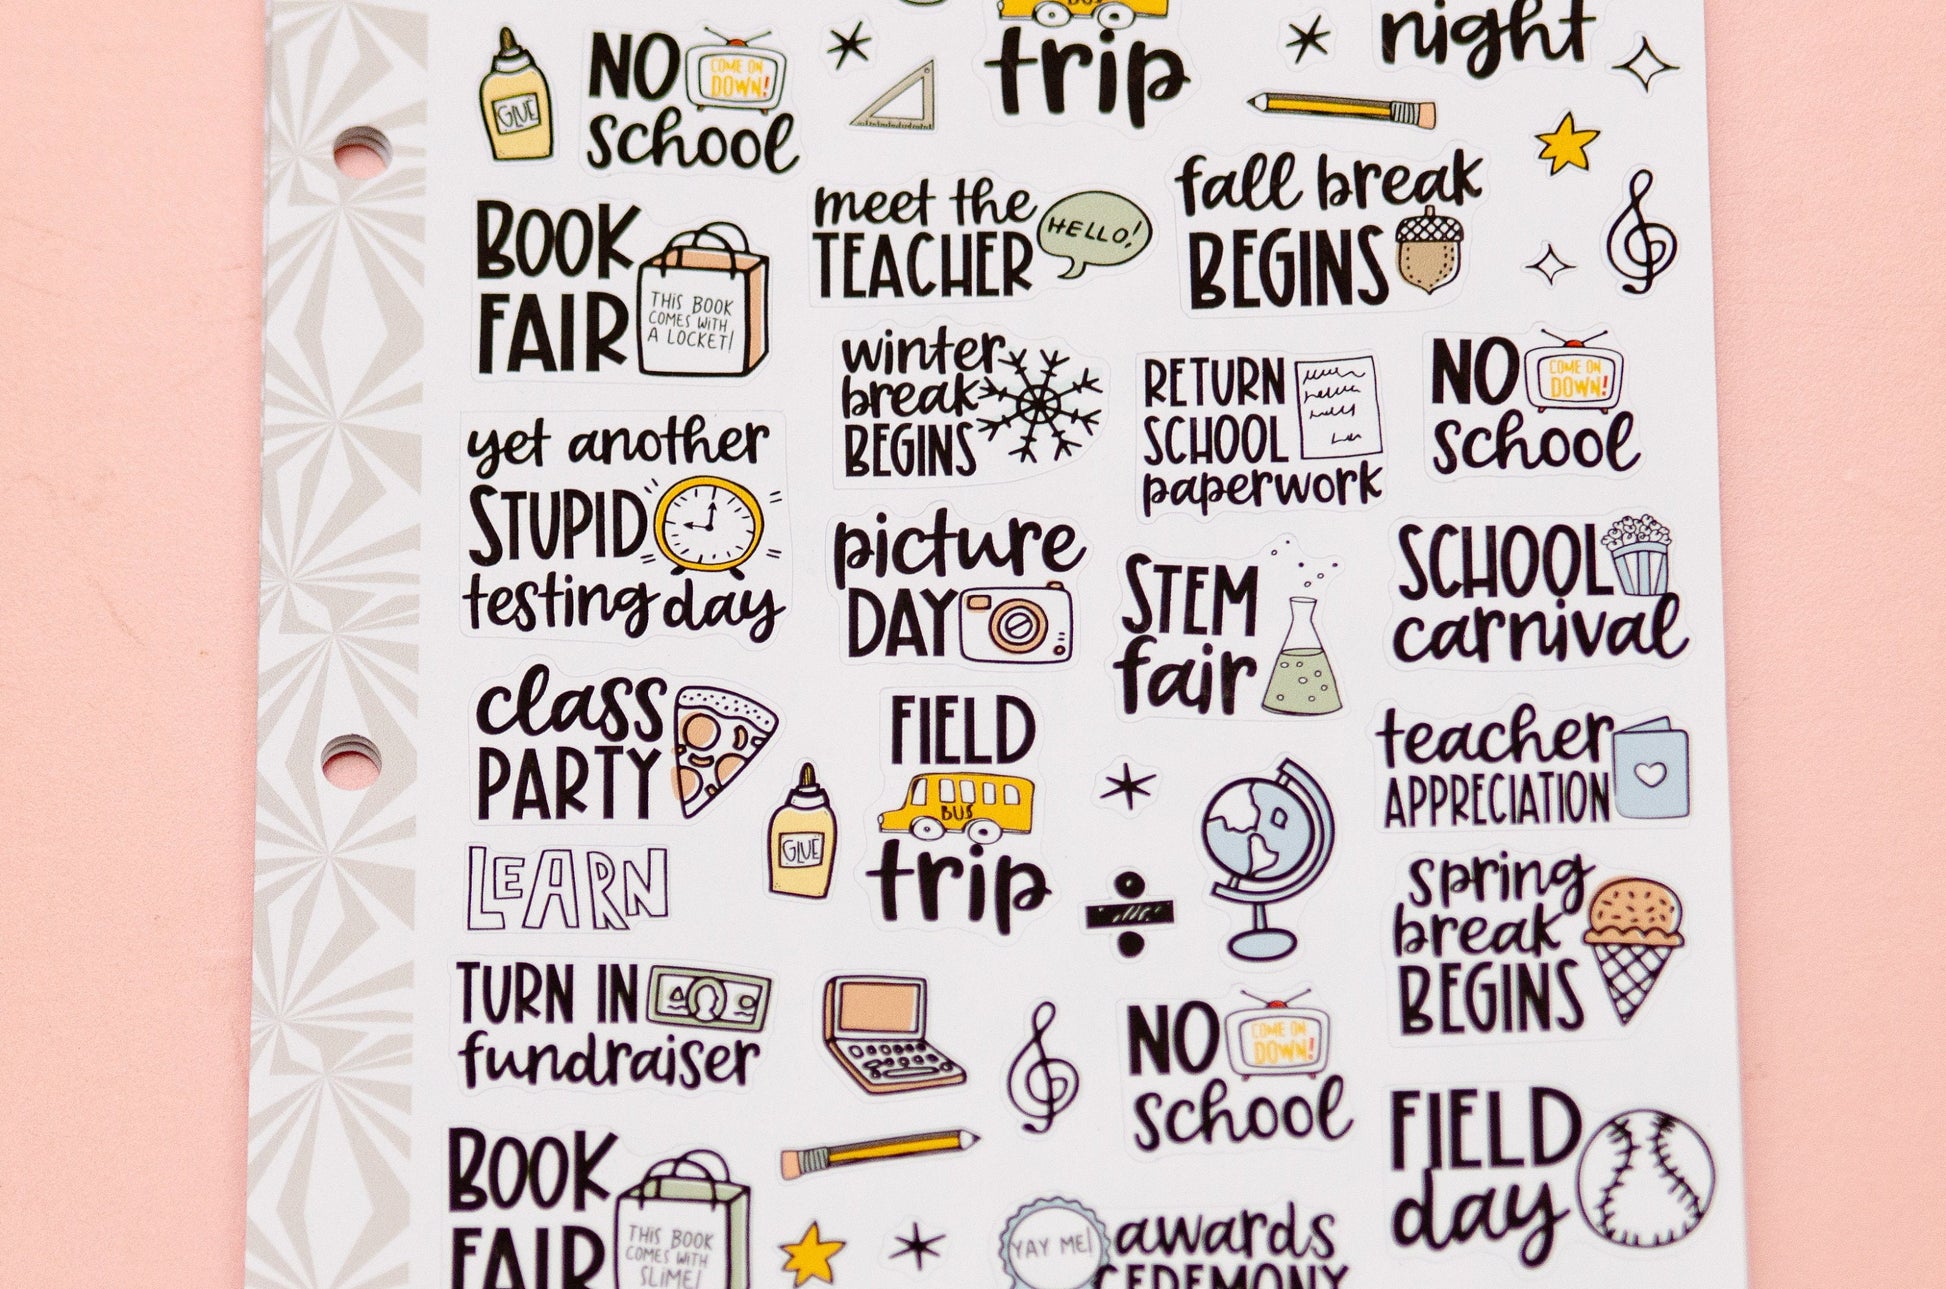 BUS
trip
night
GLUE
NO
COME ON
DOWN!
school
meet the
TEACHER
HELLO!
fall break
BEGINS
BOOK
FAIR
THIS BOOK
COMES WITH
A LOCKET!
winter
break
BEGINS
RETURN
SCHOOL
paperwork
NO
COME ON
DOWN!
school
yet another
STUPID
testing day
picture
DAY
STEM
fair
SCHOOL
carnival
class
PARTY
FIELD
BUS
trip
teacher
APPRECIATION
GLUE
LEARN
spring
break
BEGINS
TURN IN
fundraiser
NO
COME ON
DOWN!
school
FIELD
day
BOOK
FAIR
THIS BOOK
COMES WITH
SLIME!
YAY ME!
awards
CEREMONY